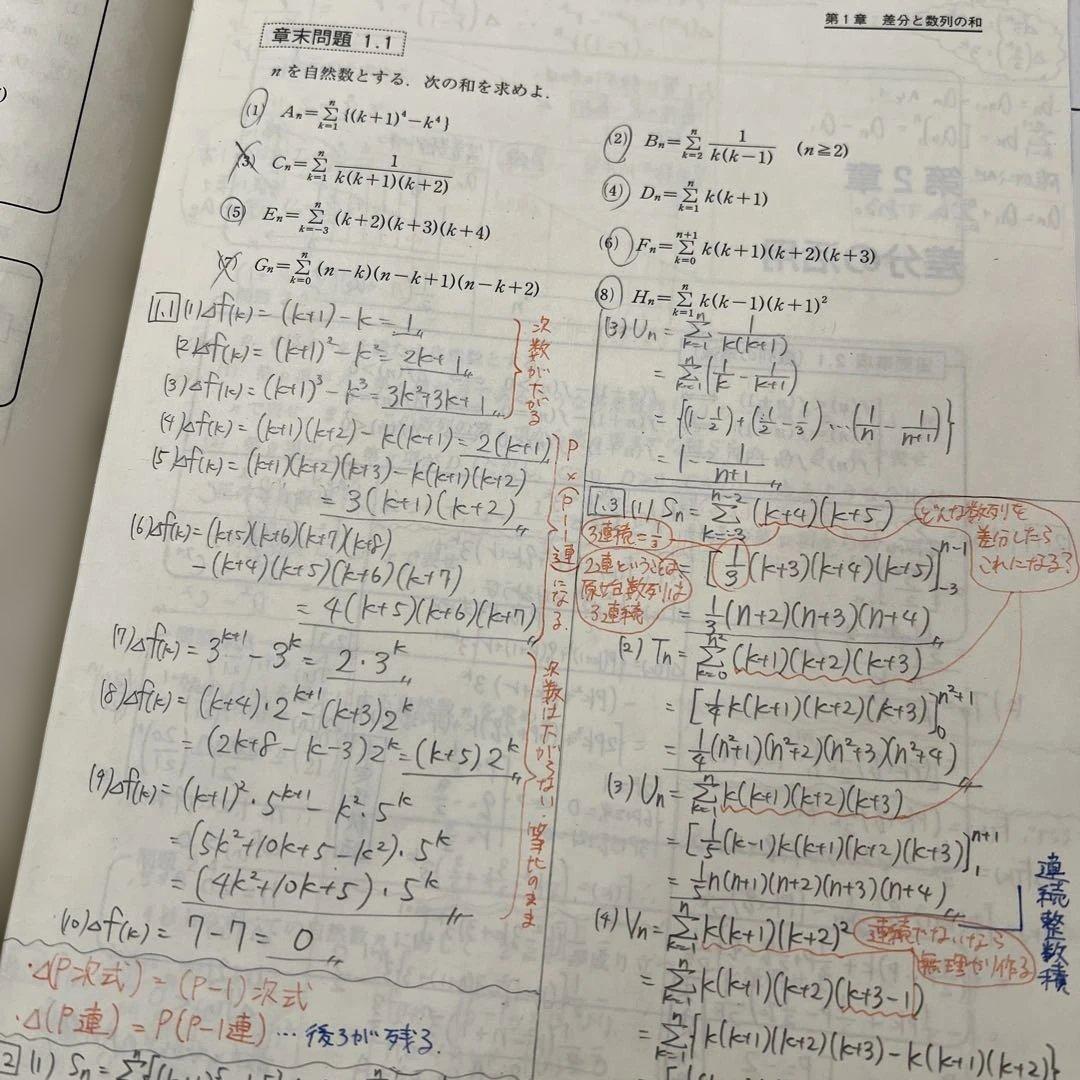 第1章 差分と数列の和
章末問題 1.1
nを自然数とする.次の和を求めよ.
(1) Aₙ=Σ_{k=1}^{n} {(k+1)⁴−k⁴}
(2) Bₙ=Σ_{k=2}^{n} 1/(k(k−1)) (n≧2)
(3) Cₙ=Σ_{k=1}^{n} 1/(k(k+1)(k+2))
(4) Dₙ=Σ_{k=1}^{n} k(k+1)
(5) Eₙ=Σ_{k=−3}^{n} (k+2)(k+3)(k+4)
(6) Fₙ=Σ_{k=0}^{n+1} k(k+1)(k+2)(k+3)
(7) Gₙ=Σ_{k=0}^{n} (n−k)(n−k+1)(n−k+2)
(8) Hₙ=Σ_{k=1}^{n} k(k−1)(k+1)²
1.1 (1) Δf(k) = (k+1)−k = 1
(2) Δf(k) = (k+1)²−k² = 2k+1
(3) Δf(k) = (k+1)³−k³ = 3k²+3k+1
次数が下がる
(4) Δf(k) = (k+1)(k+2)−k(k+1) = 2(k+1)
(5) Δf(k) = (k+1)(k+2)(k+3)−k(k+1)(k+2)
= 3(k+1)(k+2)
(6) Δf(k) = (k+5)(k+6)(k+7)(k+8)
−(k+4)(k+5)(k+6)(k+7)
= 4(k+5)(k+6)(k+7)
P×(P−1連)になる.
(7) Δf(k) = 3^{k+1}−3^k = 2・3^k
(8) Δf(k) = (k+4)・2^{k+1}−(k+3)2^k
= (2k+8−k−3)2^k = (k+5)2^k
(9) Δf(k) = (k+1)²・5^{k+1}−k²・5^k
= (5k²+10k+5−k²)・5^k
= (4k²+10k+5)・5^k
次数は下がらない.等比のまま
(10) Δf(k) = 7−7 = 0
・Δ(P次式) = (P−1)次式
・Δ(P連) = P(P−1連) …後ろが残る.
2 (1) Sₙ =
(3) Uₙ = Σ_{k=1}^{n} 1/(k(k+1))
= Σ_{k=1}^{n} (1/k − 1/(k+1))
= {(1−1/2)+(1/2−1/3)…(1/n − 1/(n+1))}
= 1 − 1/(n+1)
1.3 (1) Sₙ = Σ_{k=−3}^{n−2} (k+4)(k+5)
どんな数列を差分したらこれになる?
3連続=1/3
2連ということは原始数列は3連続
= [1/3(k+3)(k+4)(k+5)]_{−3}^{n−1}
= 1/3(n+2)(n+3)(n+4)
(2) Tₙ = Σ_{k=0}^{n²} (k+1)(k+2)(k+3)
= [1/4 k(k+1)(k+2)(k+3)]_{0}^{n²+1}
= 1/4(n²+1)(n²+2)(n²+3)(n²+4)
(3) Uₙ = Σ_{k=1}^{n} k(k+1)(k+2)(k+3)
= [1/5(k−1)k(k+1)(k+2)(k+3)]_{1}^{n+1}
= 1/5 n(n+1)(n+2)(n+3)(n+4)
連続整数積
(4) Vₙ = Σ_{k=1}^{n} k(k+1)(k+2)²
連続でないなら無理やり作る
= Σ_{k=1}^{n} k(k+1)(k+2)(k+3−1)
= Σ_{k=1}^{n} {k(k+1)(k+2)(k+3)−k(k+1)(k+2)}